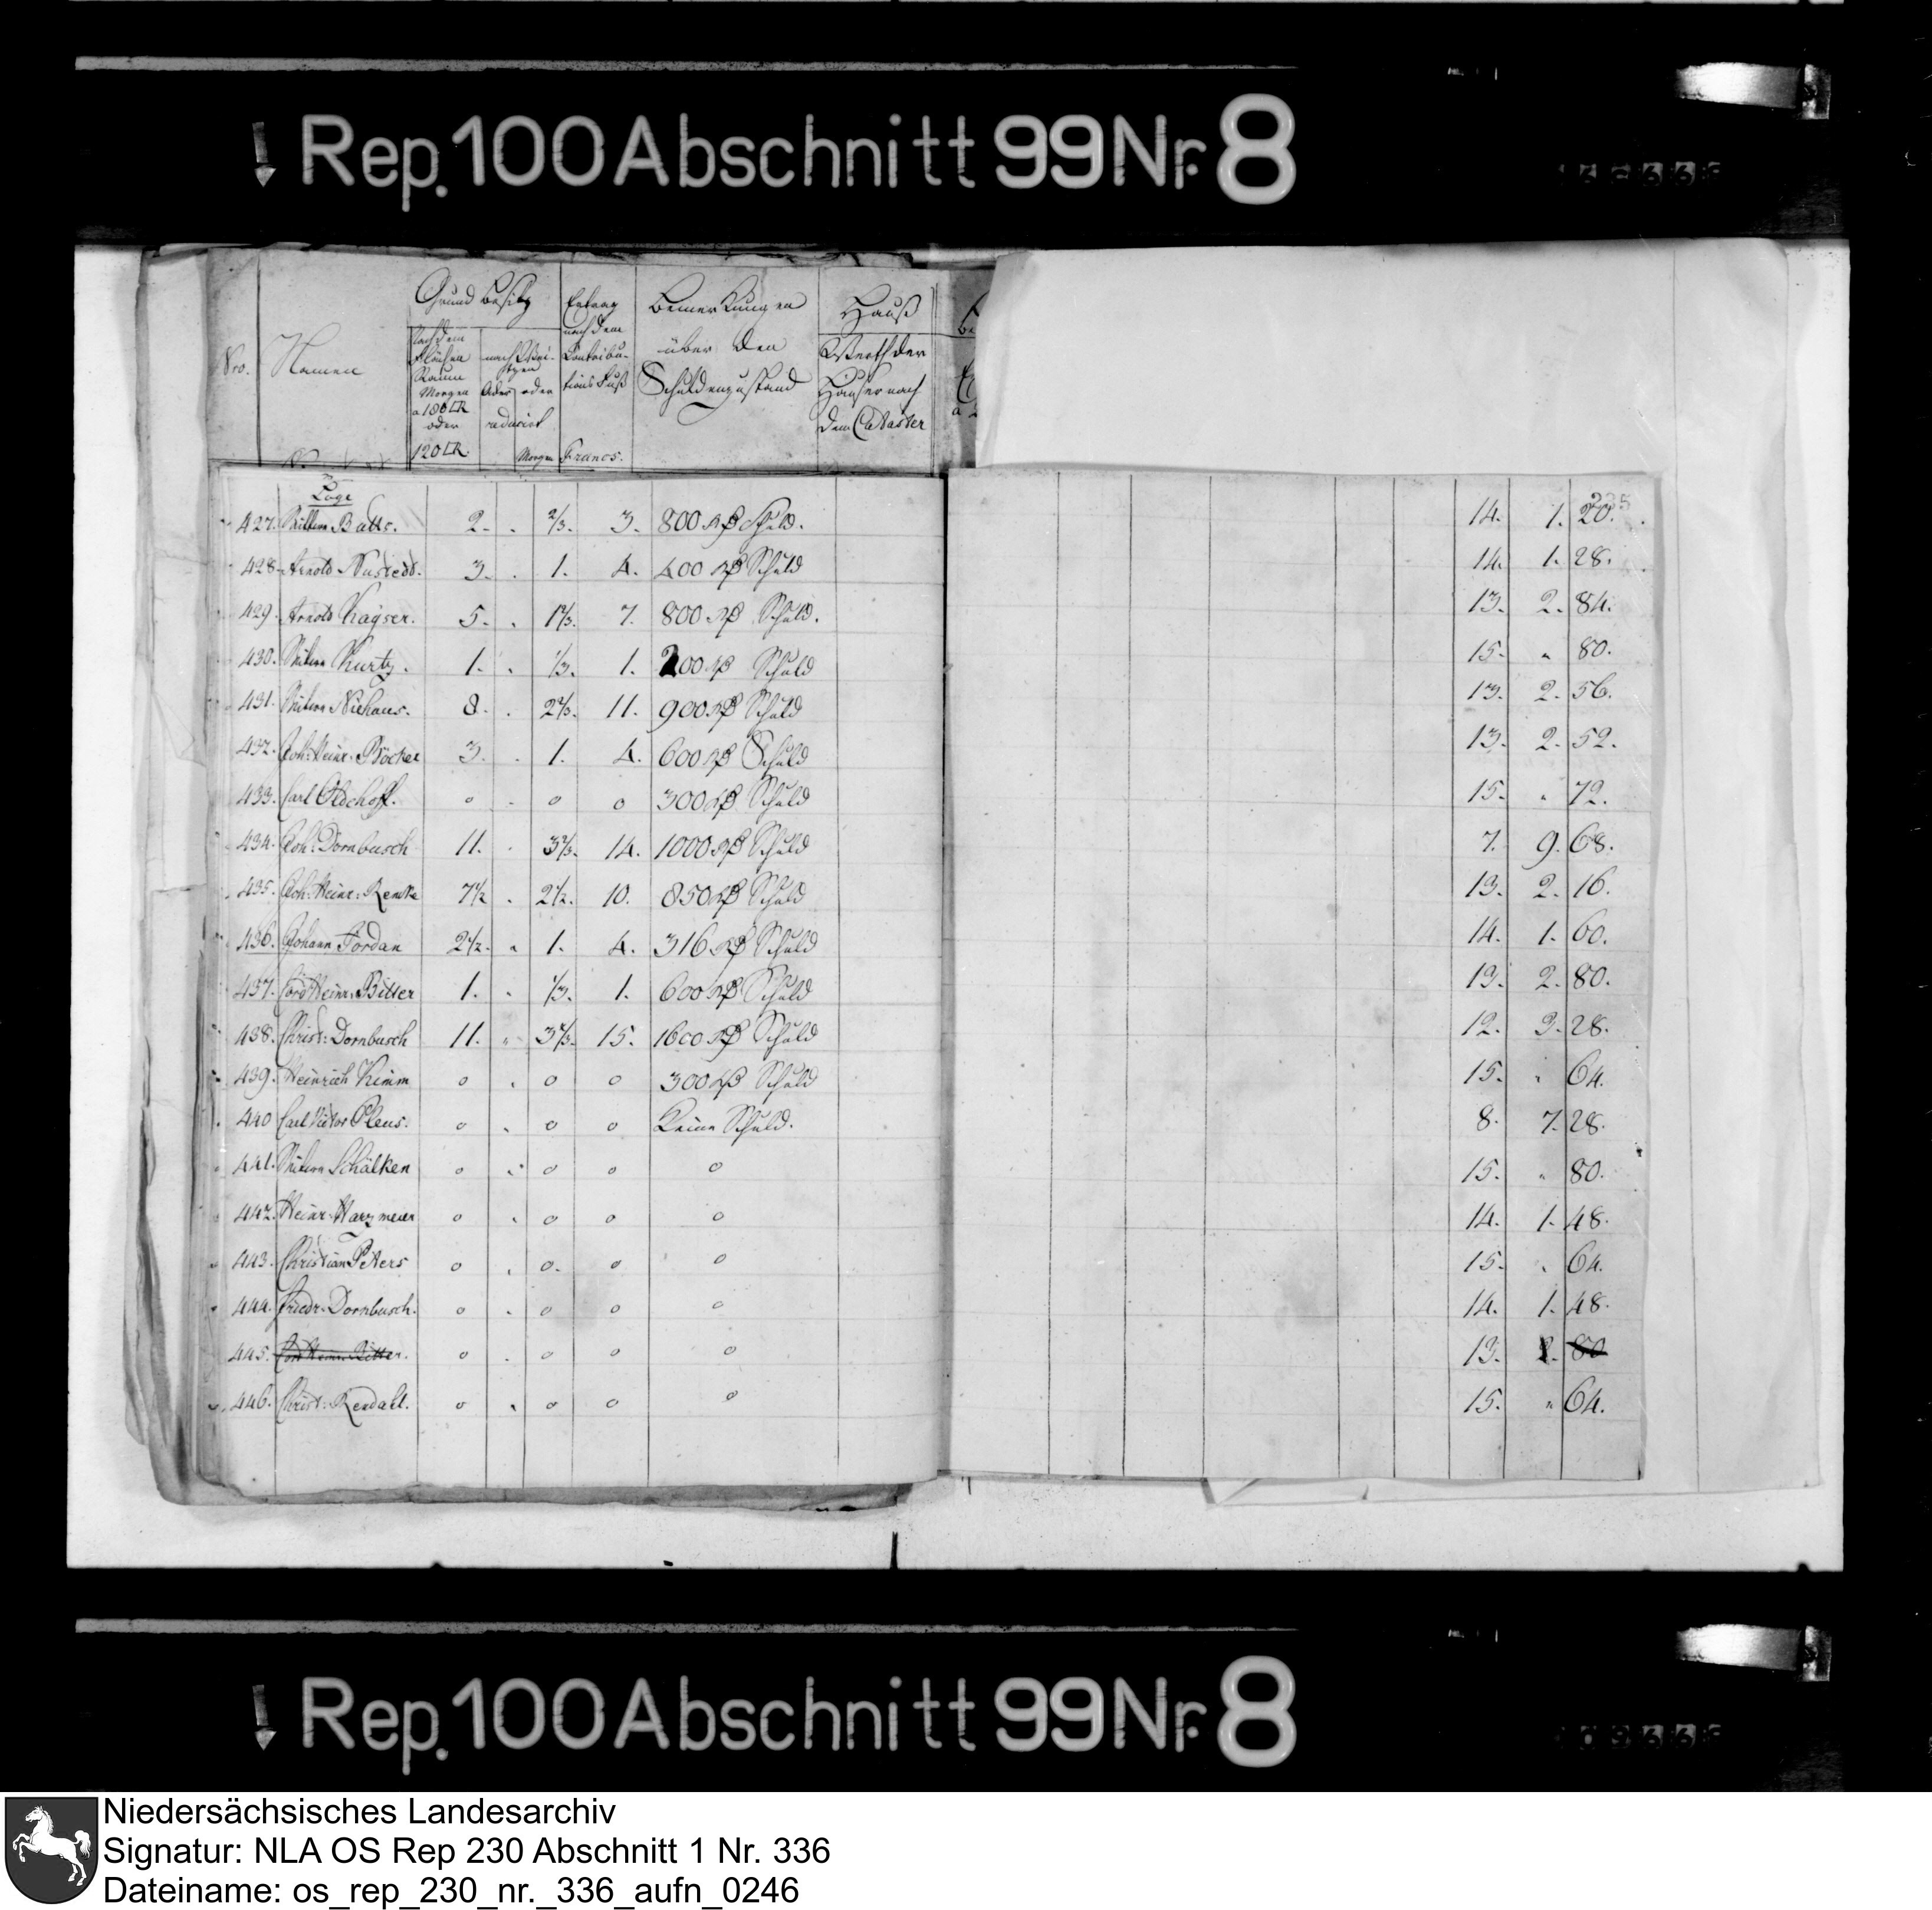 Rep. 100 Abschnitt 99 Nr. 8
Nro. Namen Grund Besitz Bemerkungen über den Schuldenzustand Hauß
nach dem Flächen Raum Morgen a 180 □R oder 120 □R.
oder reducirt Morgen
nach dem Contributions Fuß Francs.
Werth der Häuser nach dem Cataster
Lage
235
427. Wittwe Balls. 2. . 2/3. 3. 800 Rß Schuld. 14. 1. 20.
428. Arnold Nustedt. 3. . 1. 4. 400 Rß Schuld 14. 1. 28.
429. Arnold Kayser. 5. . 1 2/3. 7. 800 Rß Schuld. 13. 2. 84.
430. Wittwe Kurtz. 1. . 1/3. 1. 200 Rß Schuld 15. " 80.
431. Wittwe Niehaus. 8. . 2 2/3. 11. 900 Rß Schuld 13. 2. 56.
432. Joh: Heinr. Böcker 3. . 1. 4. 600 Rß Schuld 13. 2. 52.
433. Carl Oldehoff. 0 . 0 0 300 Rß Schuld 15. " 72.
434. Joh: Dornbusch 11. . 3 2/3. 14. 1000 Rß Schuld 7. 9. 68.
435. Joh: Heinr: Remke 7 1/2 . 2 1/2. 10. 850 Rß Schuld 13. 2. 16.
436. Johann Jordan 2 1/2. " 1. 4. 316 Rß Schuld 14. 1. 60.
437. Cord Heinr. Bitter 1. . 1/3. 1. 600 Rß Schuld 13. 2. 80.
438. Christ: Dornbusch 11. " 3 2/3. 15. 1600 Rß Schuld 12. 3. 28.
439. Heinrich Kimm 0 . 0 0 300 Rß Schuld 15. " 64.
440 Carl Victor Pleus. 0 . 0 0 Keine Schuld. 8. 7. 28.
441. Wittwe Schälken 0 . 0 0 0 15. " 80.
442. Heinr. Harzmeier 0 . 0 0 0 14. 1. 48.
443. Christian Peters 0 . 0. 0 0 15. . 64.
444. Friedr. Dornbusch. 0 . 0 0 0 14. 1. 48.
445. Cord Heinr. Bitter. 0 . 0 0 0 13. 2. 80
446. Christ: Rendahl. 0 . 0 0 0 15. " 64.
Rep. 100 Abschnitt 99 Nr. 8
Niedersächsisches Landesarchiv
Signatur: NLA OS Rep 230 Abschnitt 1 Nr. 336
Dateiname: os_rep_230_nr._336_aufn_0246